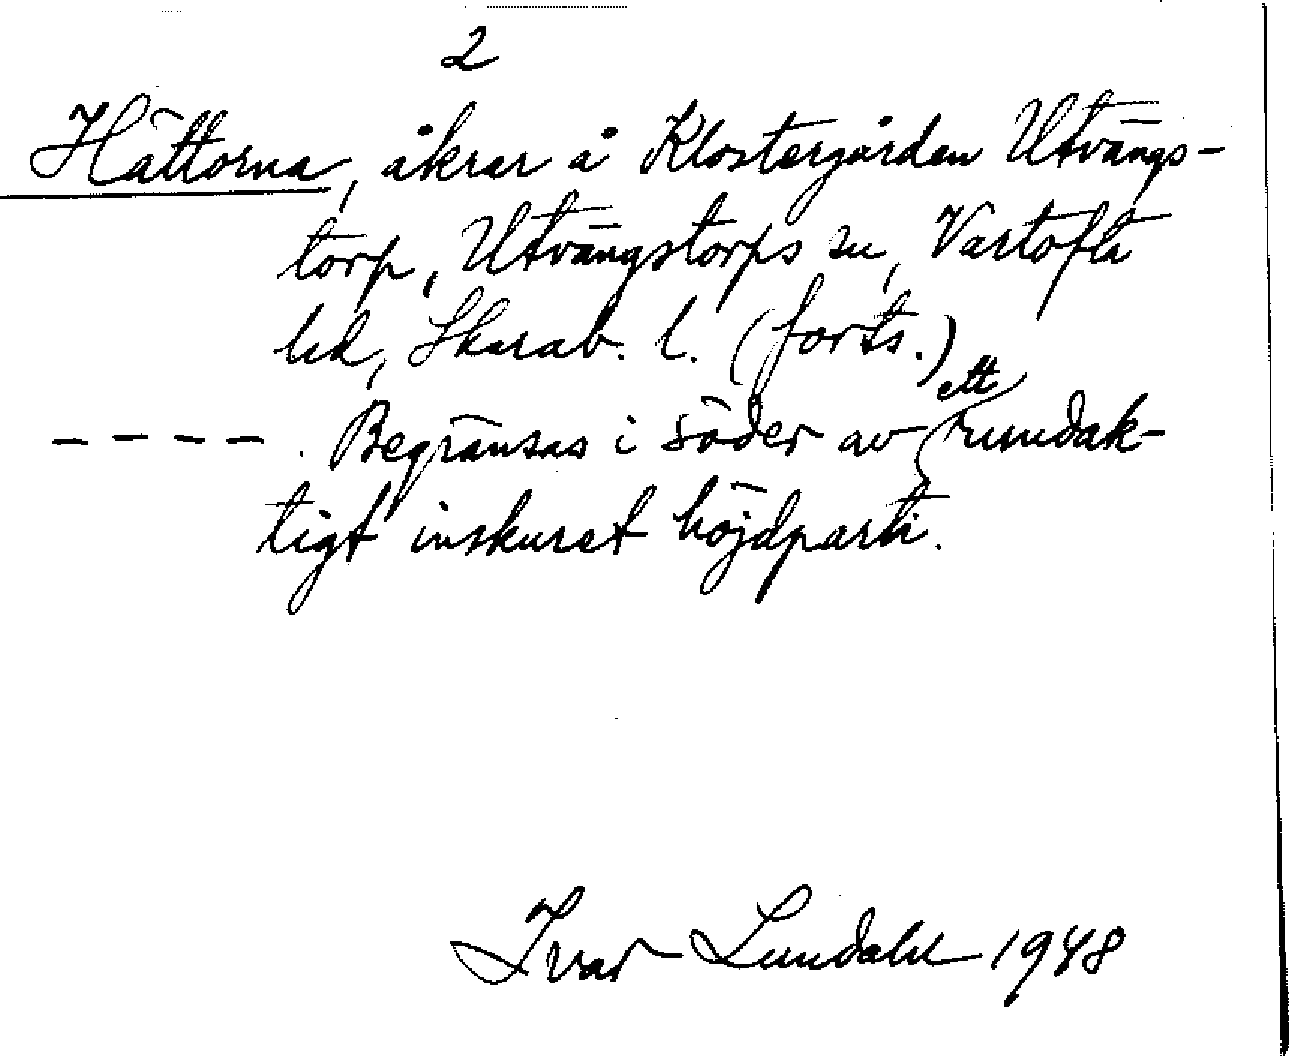 2
Hättorna, åkrar å Klostergården Utvängs-
torp, Utvängstorps sn, Vartofta
hd, Skarab. l. (forts.)
ett
- - - - . Begränsas i söder av rundak-
tigt inskuret höjdparti.
Ivar Lundahl 1948